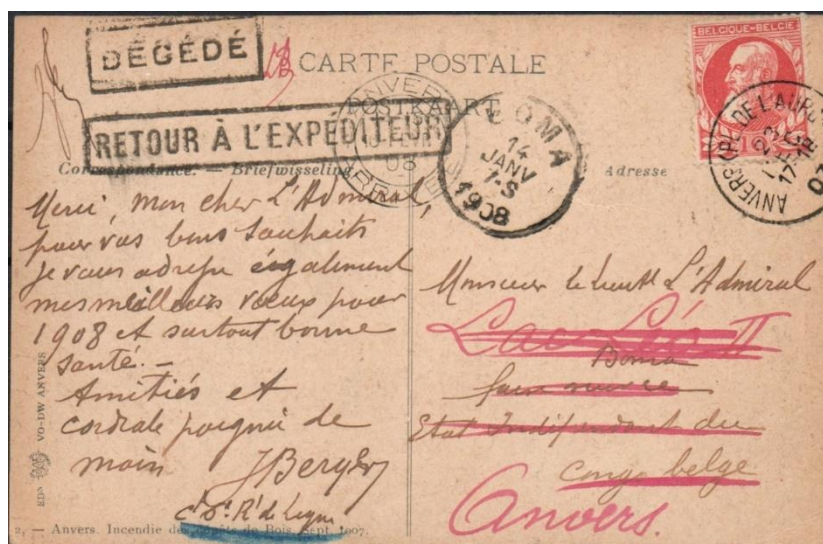 DÉGÉDÉ
CARTE POSTALE
POSTKAART
RETOUR À L'EXPÉDITEUR
ANVERS
08
BOMA
14
JANV
7-S
1908
BELGIQUE-BELGIË
10
ANVERS (PL. DE L'AURORE
23
17-18
07
Correspondance. — Briefwisseling
Adresse
Merci, mon cher L'Admiral,
pour vos bons souhaits
je vous adresse également
mes meilleurs vœux pour
1908 et surtout bonne
santé. —
Amitiés et
cordiale poignée de
main
Monsieur le Lieutt L'Admiral
Lac Léo II
Boma
faire suivre
Etat Indépendant du
Congo belge
Anvers.
EDN VO-DW ANVERS
2. — Anvers. Incendie des dépôts de Bois, Sept. 1907.